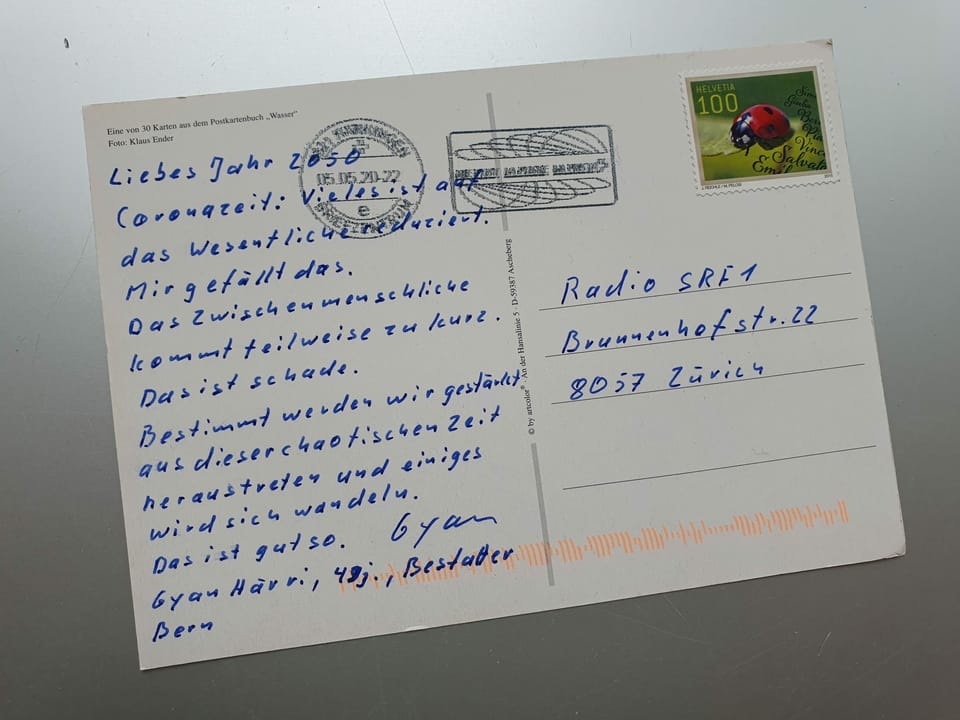 Eine von 30 Karten aus dem Postkartenbuch „Wasser"
Foto: Klaus Ender
Liebes Jahr 2050
Coronazeit: Vieles ist auf
das Wesentliche reduziert.
Mir gefällt das.
Das Zwischenmenschliche
kommt teilweise zu kurz.
Das ist schade.
Bestimmt werden wir gestärkt
aus dieser chaotischen Zeit
heraustreten und einiges
wird sich wandeln.
Das ist gut so. Gyan
Gyan Härri, 49j., Bestatter
Bern
05.05.20-22
BRIEFZENTRUM
e
© by artcolor® · An der Hansalinie 5 · D-59387 Ascheberg
HELVETIA
100
Salvat
Emil
Radio SRF1
Brunnenhofstr. 22
8057 Zürich